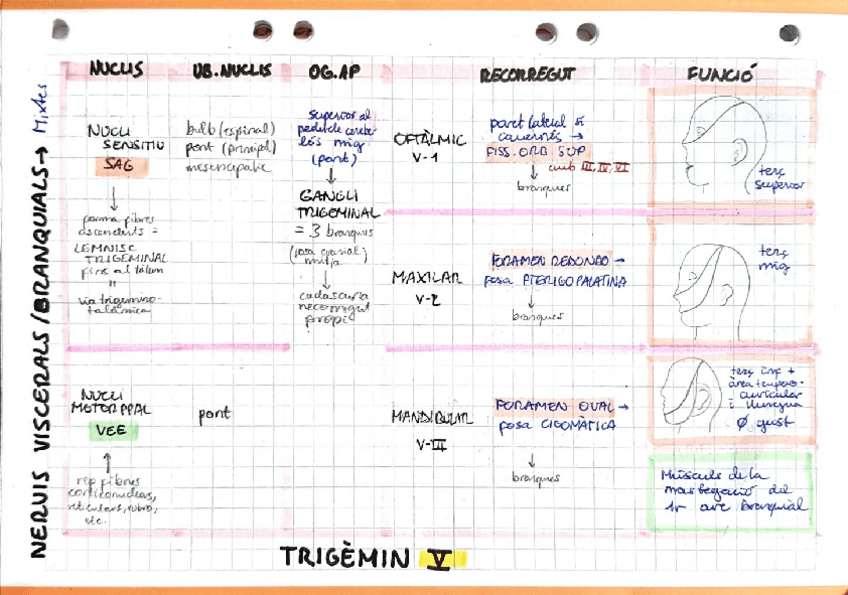 NUCLIS
UB.NUCLIS
OG.AP
RECORREGUT
FUNCIÓ
NERVIS VISCERALS/BRANQUIALS → Mixtes
NUCLI
SENSITIU
SAG
↓
forma fibres
descendents =
LEMNISC
TRIGEMINAL
fins al tàlem
=
via trigemino-
talàmica
bulb (espinal)
pont (principl)
mesencefàlic
superior al
peduncle cereb
lós mig
(pont)
↓
GANGLI
TRIGEMINAL
= 3 branques
(fosa cranial
mitja
↓
cadascuna
recorregut
propi
OFTÀLMIC
V-1
paret lateral si
cavernós →
FISS. ORB SUP
amb III, IV, VI
↓
branques
terç
superior
MAXILAR
V-2
FORAMEN REDONDO →
fosa PTERIGOPALATINA
↓
branques
terç
mig
NUCLI
MOTOR PPAL
VEE
↑
rep fibres
corticonuclears,
reticulars, rubro,
etc.
pont
MANDIBULAR
V-III
FORAMEN OVAL →
fosa CIGOMÀTICA
↓
branques
terç inf +
àrea temporo-
-auricular
i llengua
Ø gust
Músculs de la
mastegació del
1r arc branquial
TRIGÈMIN V